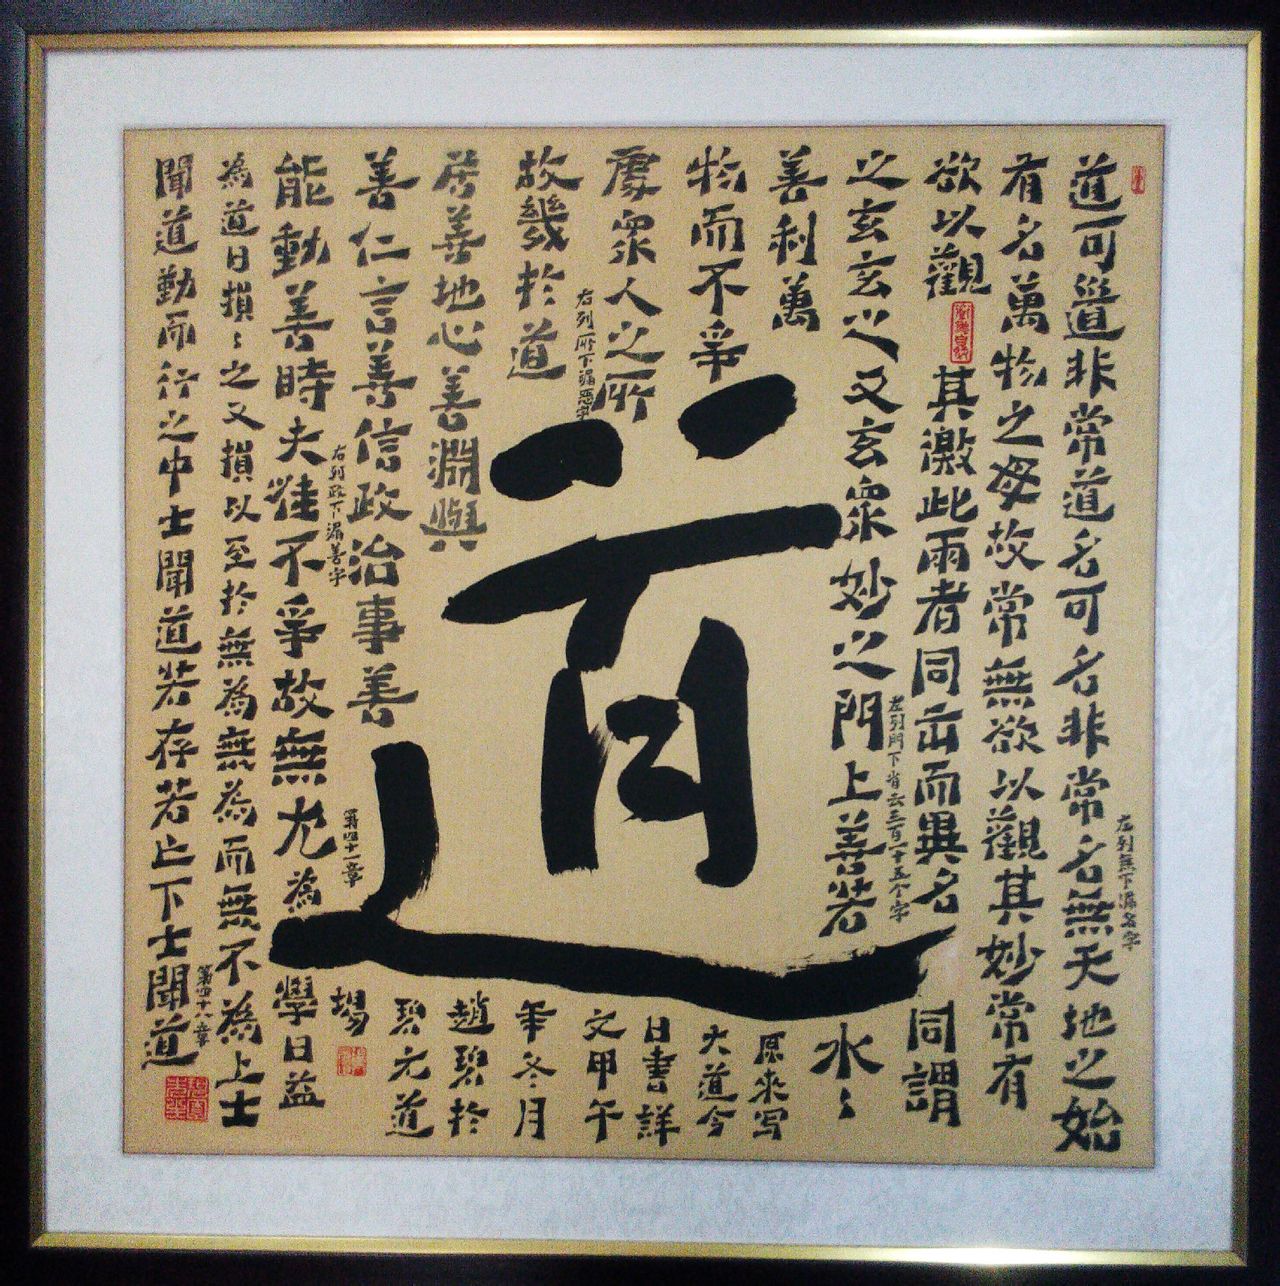 道可道非常道名可名非常名無天地之始
左列無下漏名字
有名萬物之母故常無欲以觀其妙常有
欲以觀其徼此兩者同出而異名同謂
左列門下省去三百二十五个字
之玄玄之又玄眾妙之門上善若水〻
善利萬
物而不爭
處眾人之所
右列所下漏惡字
故幾於道
居善地心善淵與
善仁言善信政治事善
右列政下漏善字
能動善時夫唯不爭故無尤為學日益
第四十八章
為道日損〻之又損以至於無為無為而無不為上士
第四十一章
聞道勤而行之中士聞道若存若亡下士聞道
道
原來写
大道今
日書詳
文甲午
年冬月
趙碧於
碧元道
場